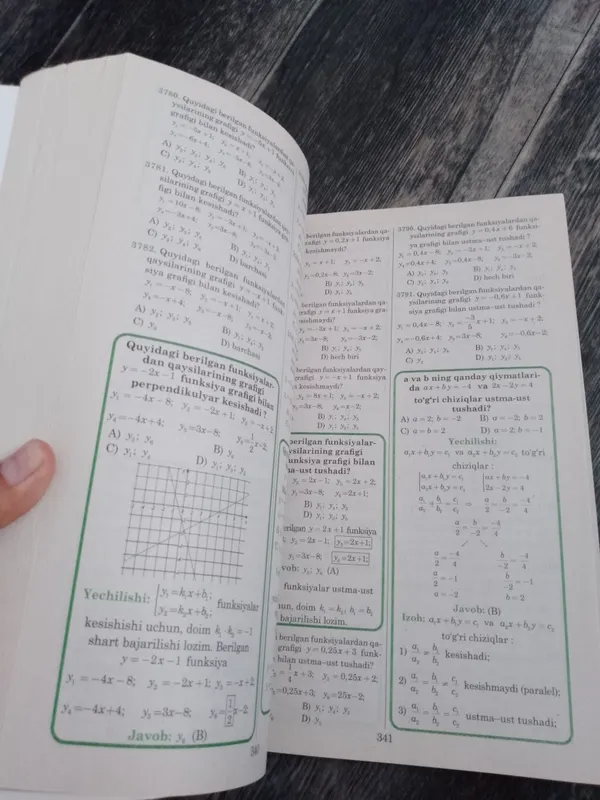 3780. Quyidagi berilgan funksiyalardan qa-
ysilarining grafigi y=-5x+1 funksiya
grafigi bilan kesishadi?
y₁=-5x+1; y₂=x+1;
y₄=-6x+4; y₅=-5x-4;
A) y₂; y₃; y₄; y₆
C) y₂; y₄; y₆
3781. Quyidagi berilgan funksiyalardan qay-
silarining grafigi y=x+1 funksiya gra-
figi bilan kesishadi?
y₁=10x-8; y₂=-3x+1;
y₄=-3x+4; y₅=3x-8;
A) y₂; y₃; y₄
C) y₂; y₄; y₆
D) barchasi
3782. Quyidagi berilgan funksiyalardan
qaysilarining grafigi y=-x+1 funk-
siya grafigi bilan kesishadi?
y₁=-x-8; y₂=-x+1; y₃=-x+2;
y₄=-x+4; y₅=3x-8;
A) y₂; y₃; y₅
B) y₁; y₂; y₃
C) y₅
D) barchasi
Quyidagi berilgan funksiyalar-
dan qaysilarining grafigi
y=-2x-1 funksiya grafigi bilan
perpendikulyar kesishadi?
y₁=-4x-8; y₂=-2x+1; y₃=-x+2;
y₄=-4x+4; y₅=3x-8; y₆=1/2x-2;
A) y₃; y₆
B) y₆
C) y₁; y₃
D) y₁; y₃; y₅
Yechilishi: {y₁=k₁x+b₁; y₂=k₂x+b₂; funksiyalar
kesishishi uchun, doim k₁·k₂=-1
shart bajarilishi lozim. Berilgan
y=-2x-1 funksiya
y₁=-4x-8; y₂=-2x+1; y₃=-x+2
y₄=-4x+4; y₅=3x-8; y₆=1/2x-2;
Javob: y₆ (B)
340
berilgan funksiyalardan qa-
rafigi y=0,2x+1 funksiya
kesishmaydi?
y₂=x+1; y₃=-x+2;
y₅=0,2x-8; y₆=3x-2;
B) y₁; y₃; y₅
D) y₁; y₅
berilgan funksiyalardan qa-
grafigi
shmaydi?
y₂=-3x+1; y₃=-x+2;
y₅=3x-8; y₆=-3x-2;
B) y₁; y₃; y₅
D) hech biri
berilgan funksiyalardan qay-
grafigi y=-x+1 funksiya
kesishmaydi?
y₂=8x+1; y₃=-x+2;
y₅=3x-8; y₆=x-2;
B) y₁; y₃
D) y₁; y₃; y₅
berilgan funksiyalar-
ysilarining grafigi
funksiya grafigi bilan
ma-ust tushadi?
y₂=2x-1; y₃=2x+2;
y₅=3x-8; y₆=2x+1;
B) y₁; y₃; y₅
D) y₁; y₃; y₅
berilgan y=2x+1 funksiya
y₂=2x-1; y₃=2x+1;
y₅=3x-8; y₆=2x+1;
vob: y₃; y₆ (A)
funksiyalar ustma-ust
hun, doim k₁=k₂, b₁=b₂
bajarilishi lozim.
berilgan funksiyalardan qa-
grafigi y=0,25x+3 funk-
bilan ustma-ust tushadi?
y₂=1/4x+3; y₃=0,25x+2;
y₅=0,25x+3; y₆=25x-2;
B) y₁; y₃; y₅
D) y₅
3790. Quyidagi berilgan funksiyalardan qa-
ysilarining grafigi y=0,4x+6 funksi-
ya grafigi bilan ustma-ust tushadi?
y₁=0,4x-8; y₂=-3x+1; y₃=-x+2;
y₄=0,4x+4; y₅=0,4x-8; y₆=-3x-2;
A) y₂; y₃; y₆
B) y₁; y₃; y₅
C) y₂; y₄; y₆
D) hech biri
3791. Quyidagi berilgan funksiyalardan qa-
ysilarining grafigi y=-0,6x+1 funk-
siya grafigi bilan ustma-ust tushadi?
y₁=0,4x-8; y₂=-3/5x+1; y₃=-x+2;
y₄=-0,6x+4; y₅=3x-8; y₆=-0,6x-2;
A) y₂; y₄; y₆
B) y₁; y₃; y₅
C) y₂
D) y₂; y₄
a va b ning qanday qiymatlari-
da ax+by=-4 va 2x-2y=4
to'g'ri chiziqlar ustma-ust
tushadi?
A) a=2; b=-2
B) a=-2; b=2
C) a=b=2
D) a=2; b=-1
Yechilishi:
a₁x+b₁y=c₁ va a₂x+b₂y=c₂ to'g'ri
chiziqlar :
{a₁x+b₁y=c₁ {ax+by=-4
{a₂x+b₂y=c₂ {2x-2y=4
a₁/a₂=b₁/b₂=c₁/c₂; a/2=b/-2=-4/4
a/2=b/-2=-4/4
a/2=-4/4 b/-2=-4/4
a/2=-1 b/-2=-1
a=-2 b=2
Javob: (B)
Izoh: a₁x+b₁y=c₁ va a₂x+b₂y=c₂
to'g'ri chiziqlar :
1) a₁/a₂≠b₁/b₂ kesishadi;
2) a₁/a₂=b₁/b₂≠c₁/c₂ kesishmaydi (paralel);
3) a₁/a₂=b₁/b₂=c₁/c₂ ustma-ust tushadi;
341